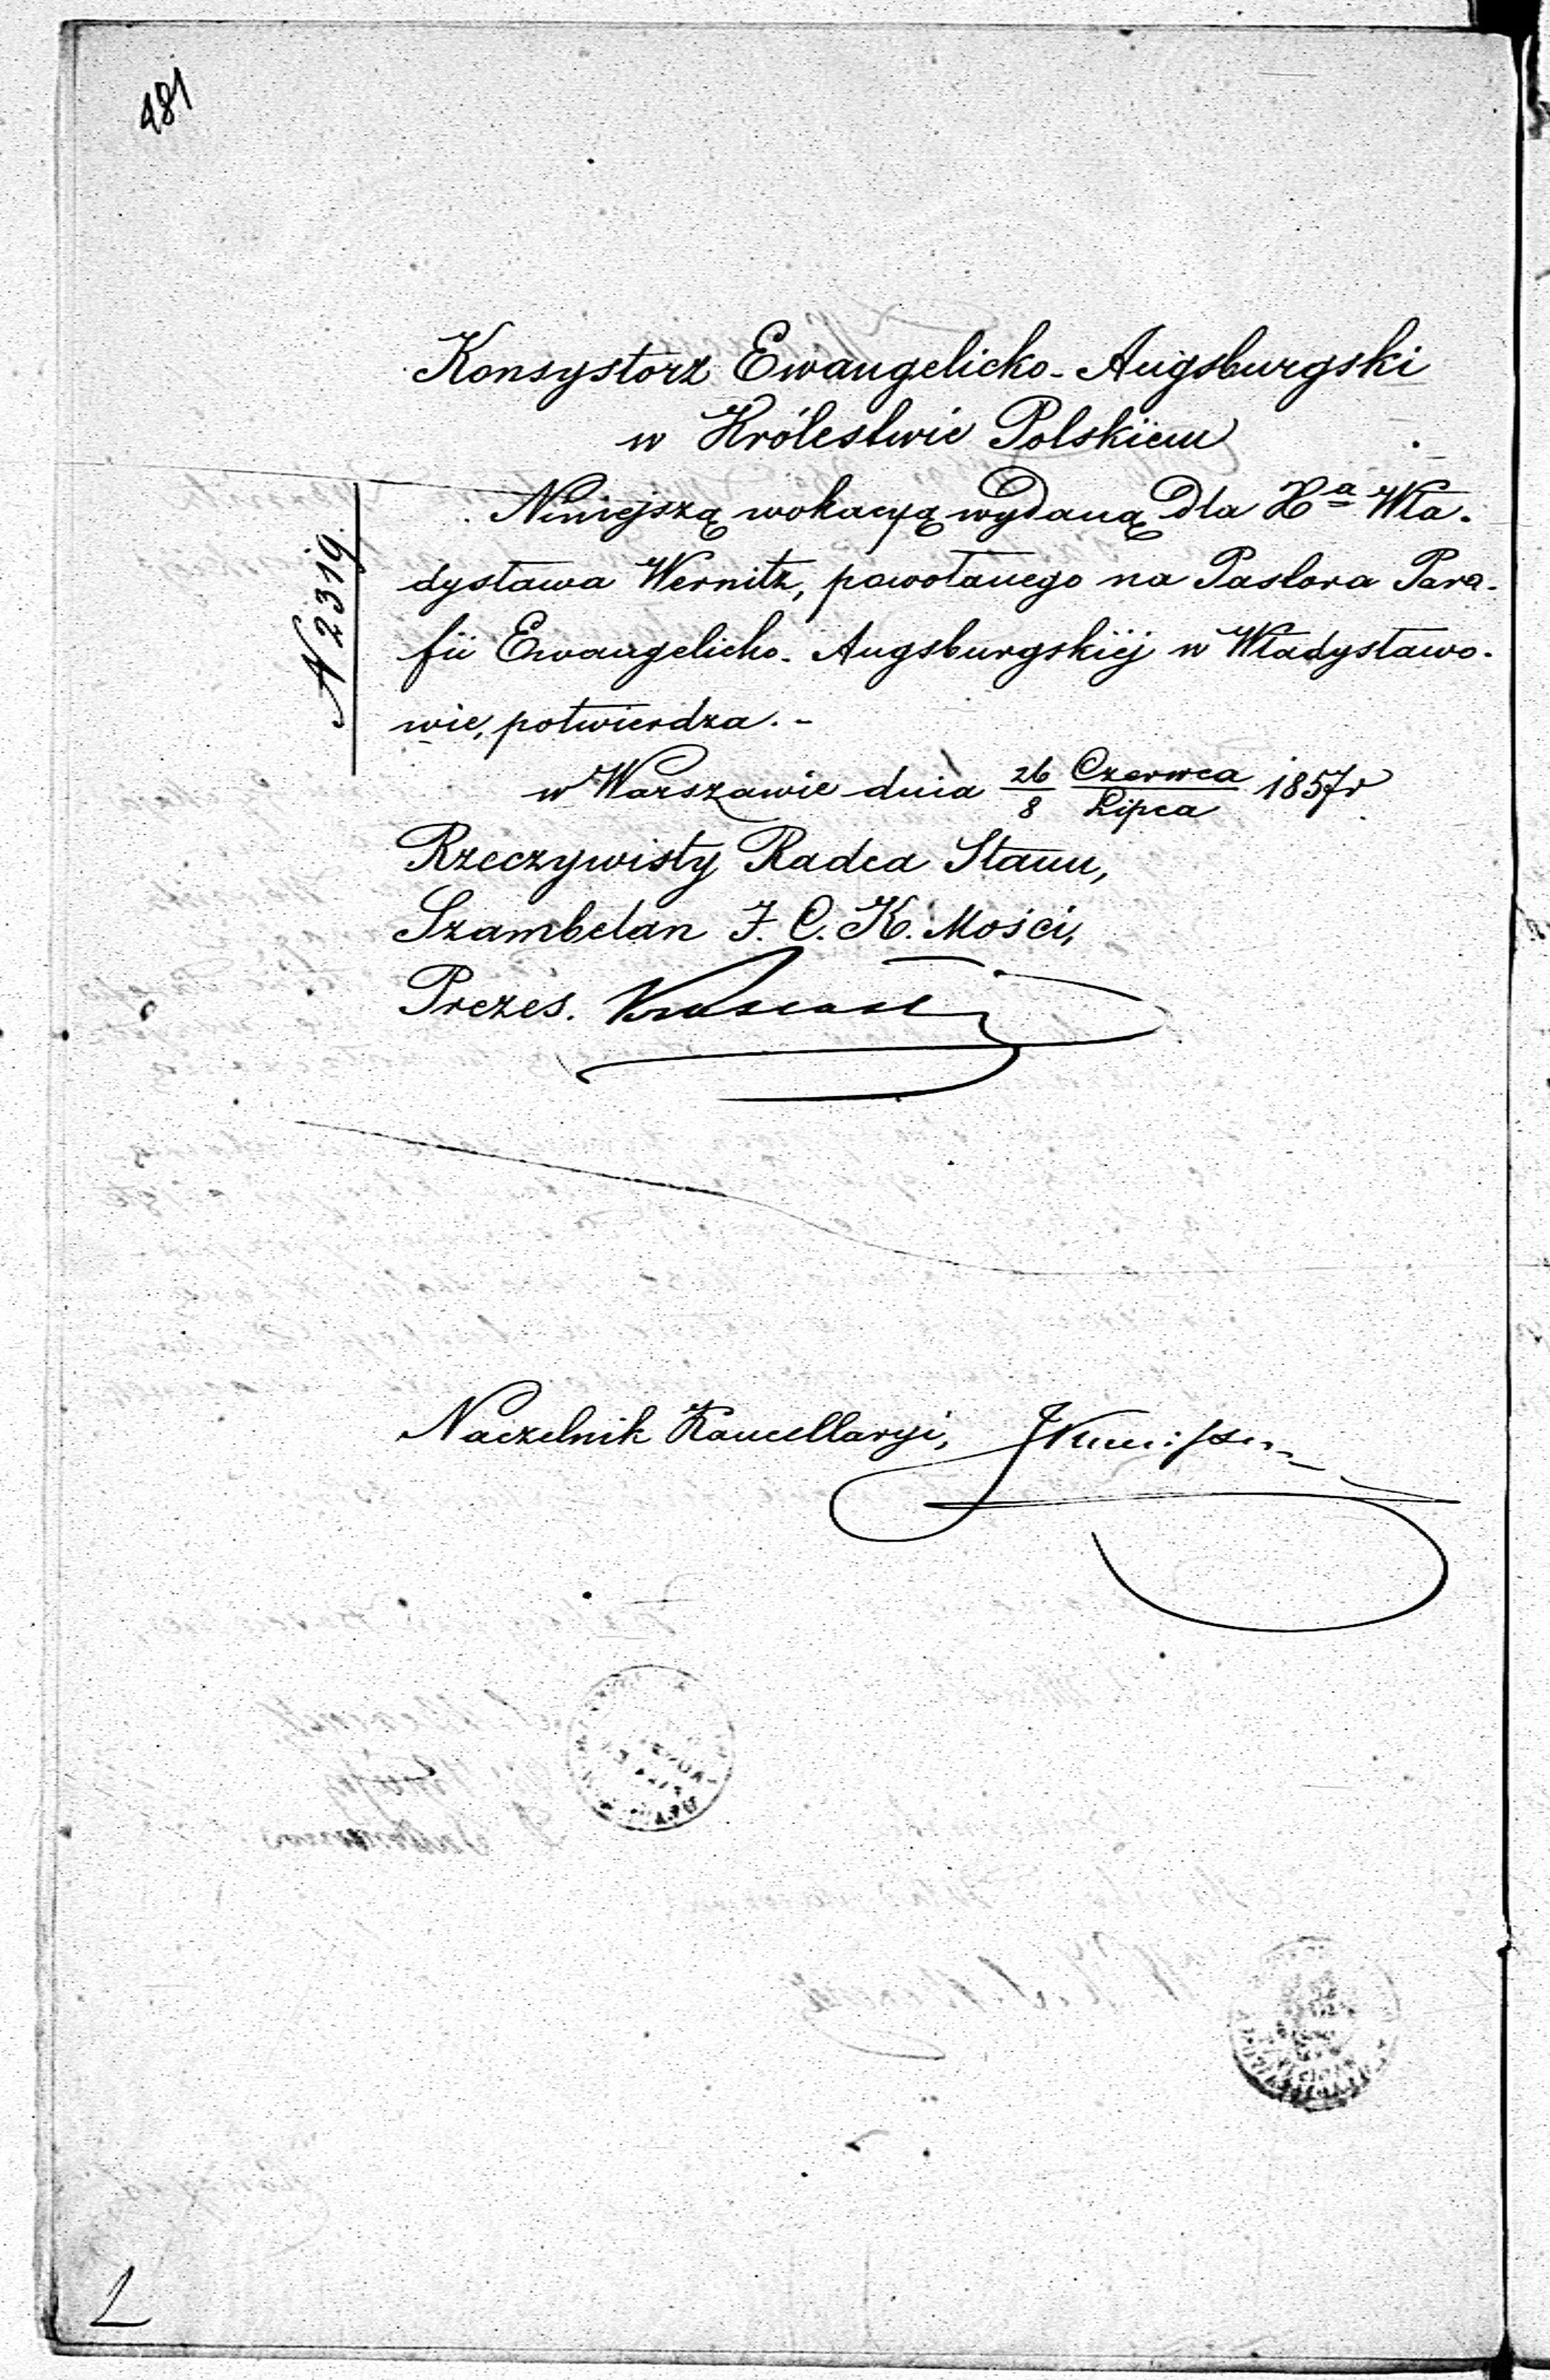 481
Konsystorz Ewangelicko-Augsburgski
w Królestwie Polskiem
N 2319.
Niniejszą wokacyą wydaną dla Xa Wła-
dysława Wernitz, powołanego na Pastora Para-
fii Ewangelicko-Augsburgskiéj w Władysławo-
wie, potwierdza.-
w Warszawie dnia 26/8 Czerwca/Lipca 1857r
Rzeczywisty Radca Stanu,
Szambelan J. C. K. Mości,
Prezes.
Naczelnik Kancellaryi,